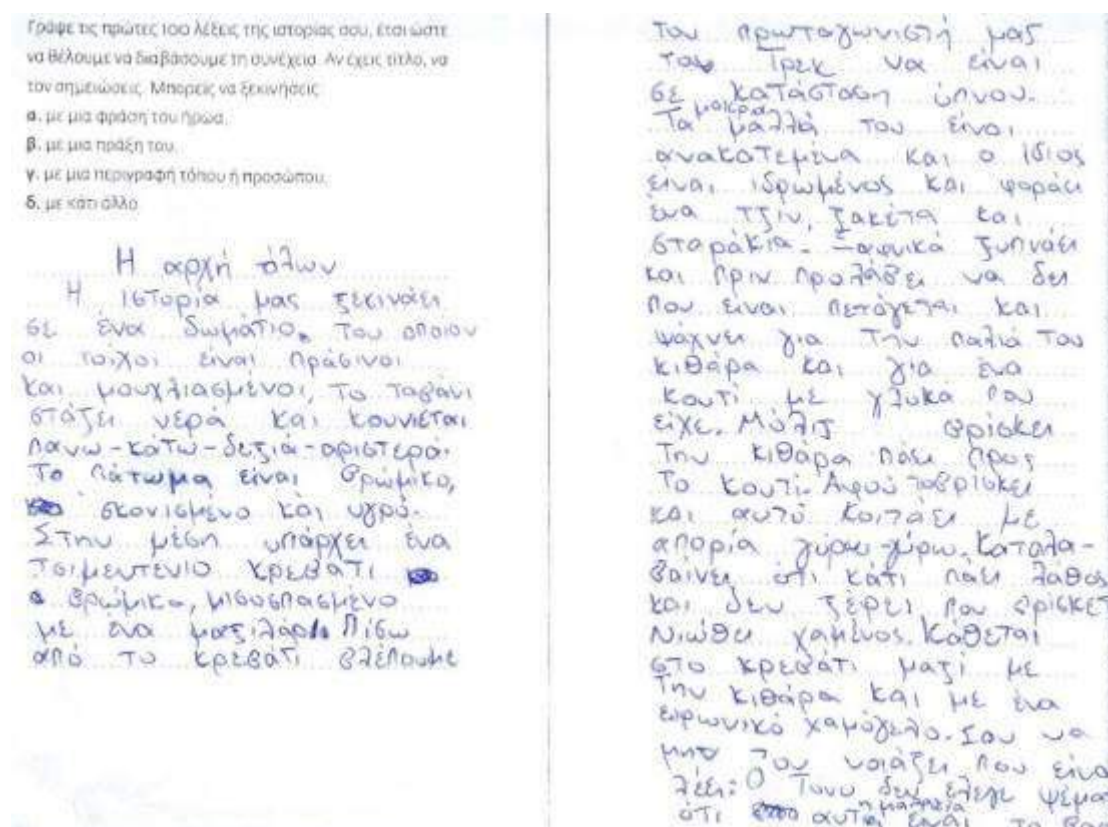 Γράψε τις πρώτες 100 λέξεις της ιστορίας σου, έτσι ώστε
να θέλουμε να διαβάσουμε τη συνέχεια. Αν έχεις τίτλο, να
τον σημειώσεις. Μπορείς να ξεκινήσεις
α. με μια φράση του ήρωα,
β. με μια πράξη του,
γ. με μια περιγραφή τόπου ή προσώπου,
δ. με κάτι άλλο
Η αρχή όλων
Η ιστορία μας ξεκινάει
σε ένα δωμάτιο. Του οποίου
οι τοίχοι είναι πράσινοι
και μουχλιασμένοι, το ταβάνι
στάζει νερά και κουνιέται
πανω-κάτω-δεξιά-αριστερά.
Το πάτωμα είναι βρώμικο,
σκονισμένο και υγρό.
Στην μέση υπάρχει ένα
τσιμεντένιο κρεβάτι
βρώμικο, μισοσπασμένο
με ένα μαξιλάρι. Πίσω
από το κρεβάτι βλέπουμε
τον πρωταγωνιστή μας
τον Τρεκ να είναι
σε κατάσταση ύπνου.
Τα μακρα μαλλιά του είναι
ανακατεμένα και ο ίδιος
είναι ιδρωμένος και φοράει
ένα τζιν, ζακέτα και
σταράκια. Ξαφνικά ξυπνάει
και πριν προλάβει να δει
που είναι πετάγεται και
ψάχνει για την παλιά του
κιθάρα και για ένα
κουτί με γλυκά που
είχε. Μόλις βρίσκει
την κιθάρα πάει προς
το κουτί. Αφού το βρίσκει
και αυτό κοιτάει με
απορία γύρω-γύρω. Καταλα-
βαίνει ότι κάτι πάει λάθος
και δεν ξέρει που βρίσκετ
Νιώθει χαμένος. Κάθεται
στο κρεβάτι μαζί με
την κιθάρα και με ένα
ειρωνικό χαμόγελο. Σαν να
μην τον νοιάζει που είνα
λέει: Ο Τονυ δεν έλεγε ψέμα
ότι αυτή η μαλακία είναι το